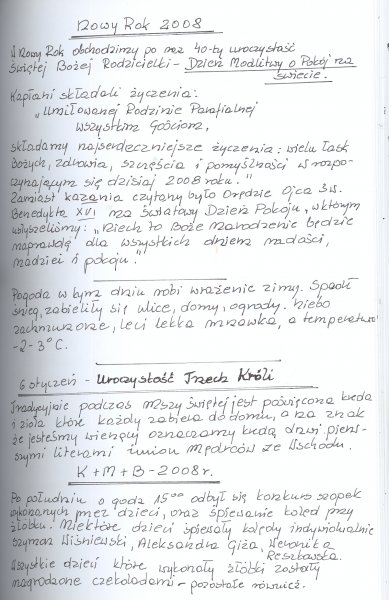 Nowy Rok 2008
W Nowy Rok obchodzimy po raz 40-ty uroczystość
Świętej Bożej Rodzicielki - Dzień Modlitwy o Pokój na
świecie.
Kapłani składali życzenia:
"Umiłowanej Rodzinie Parafialnej
Wszystkim Gościom,
składamy najserdeczniejsze życzenia: wielu łask
Bożych, zdrowia, szczęścia i pomyślności w rozpo-
czynającym się dzisiaj 2008 roku."
Zamiast kazania czytany było Orędzie Ojca Św.
Benedykta XVI na Światowy Dzień Pokoju, w którym
usłyszeliśmy: "Niech to Boże Narodzenie będzie
naprawdę dla wszystkich dniem radości,
nadziei i pokoju."
Pogoda w tym dniu robi wrażenie zimy. Spadł
śnieg, zabieliły się ulice, domy, ogrody. Niebo
zachmurzone, leci lekka mrzawka, a temperatura
-2-3°C.
6 styczeń - Uroczystość Trzech Króli
Tradycyjnie podczas Mszy Świętej jest poświęcona kreda
i zioła które każdy zabiera do domu, a na znak
że jesteśmy wierzący oznaczamy kredą drzwi pierw-
szymi literami imion Mędrców ze Wschodu.
K + M + B - 2008 r.
Po południu o godz 15⁰⁰ odbył się konkurs szopek
wykonanych przez dzieci, oraz śpiewanie kolęd przy
żłóbku. Niektóre dzieci śpiewały kolędy indywidualnie
Szymon Wiśniewski, Aleksandra Giza, Weronika
Reszkowska.
Wszystkie dzieci które wykonały żłóbki zostały
nagrodzone czekoladami - pozostałe również.